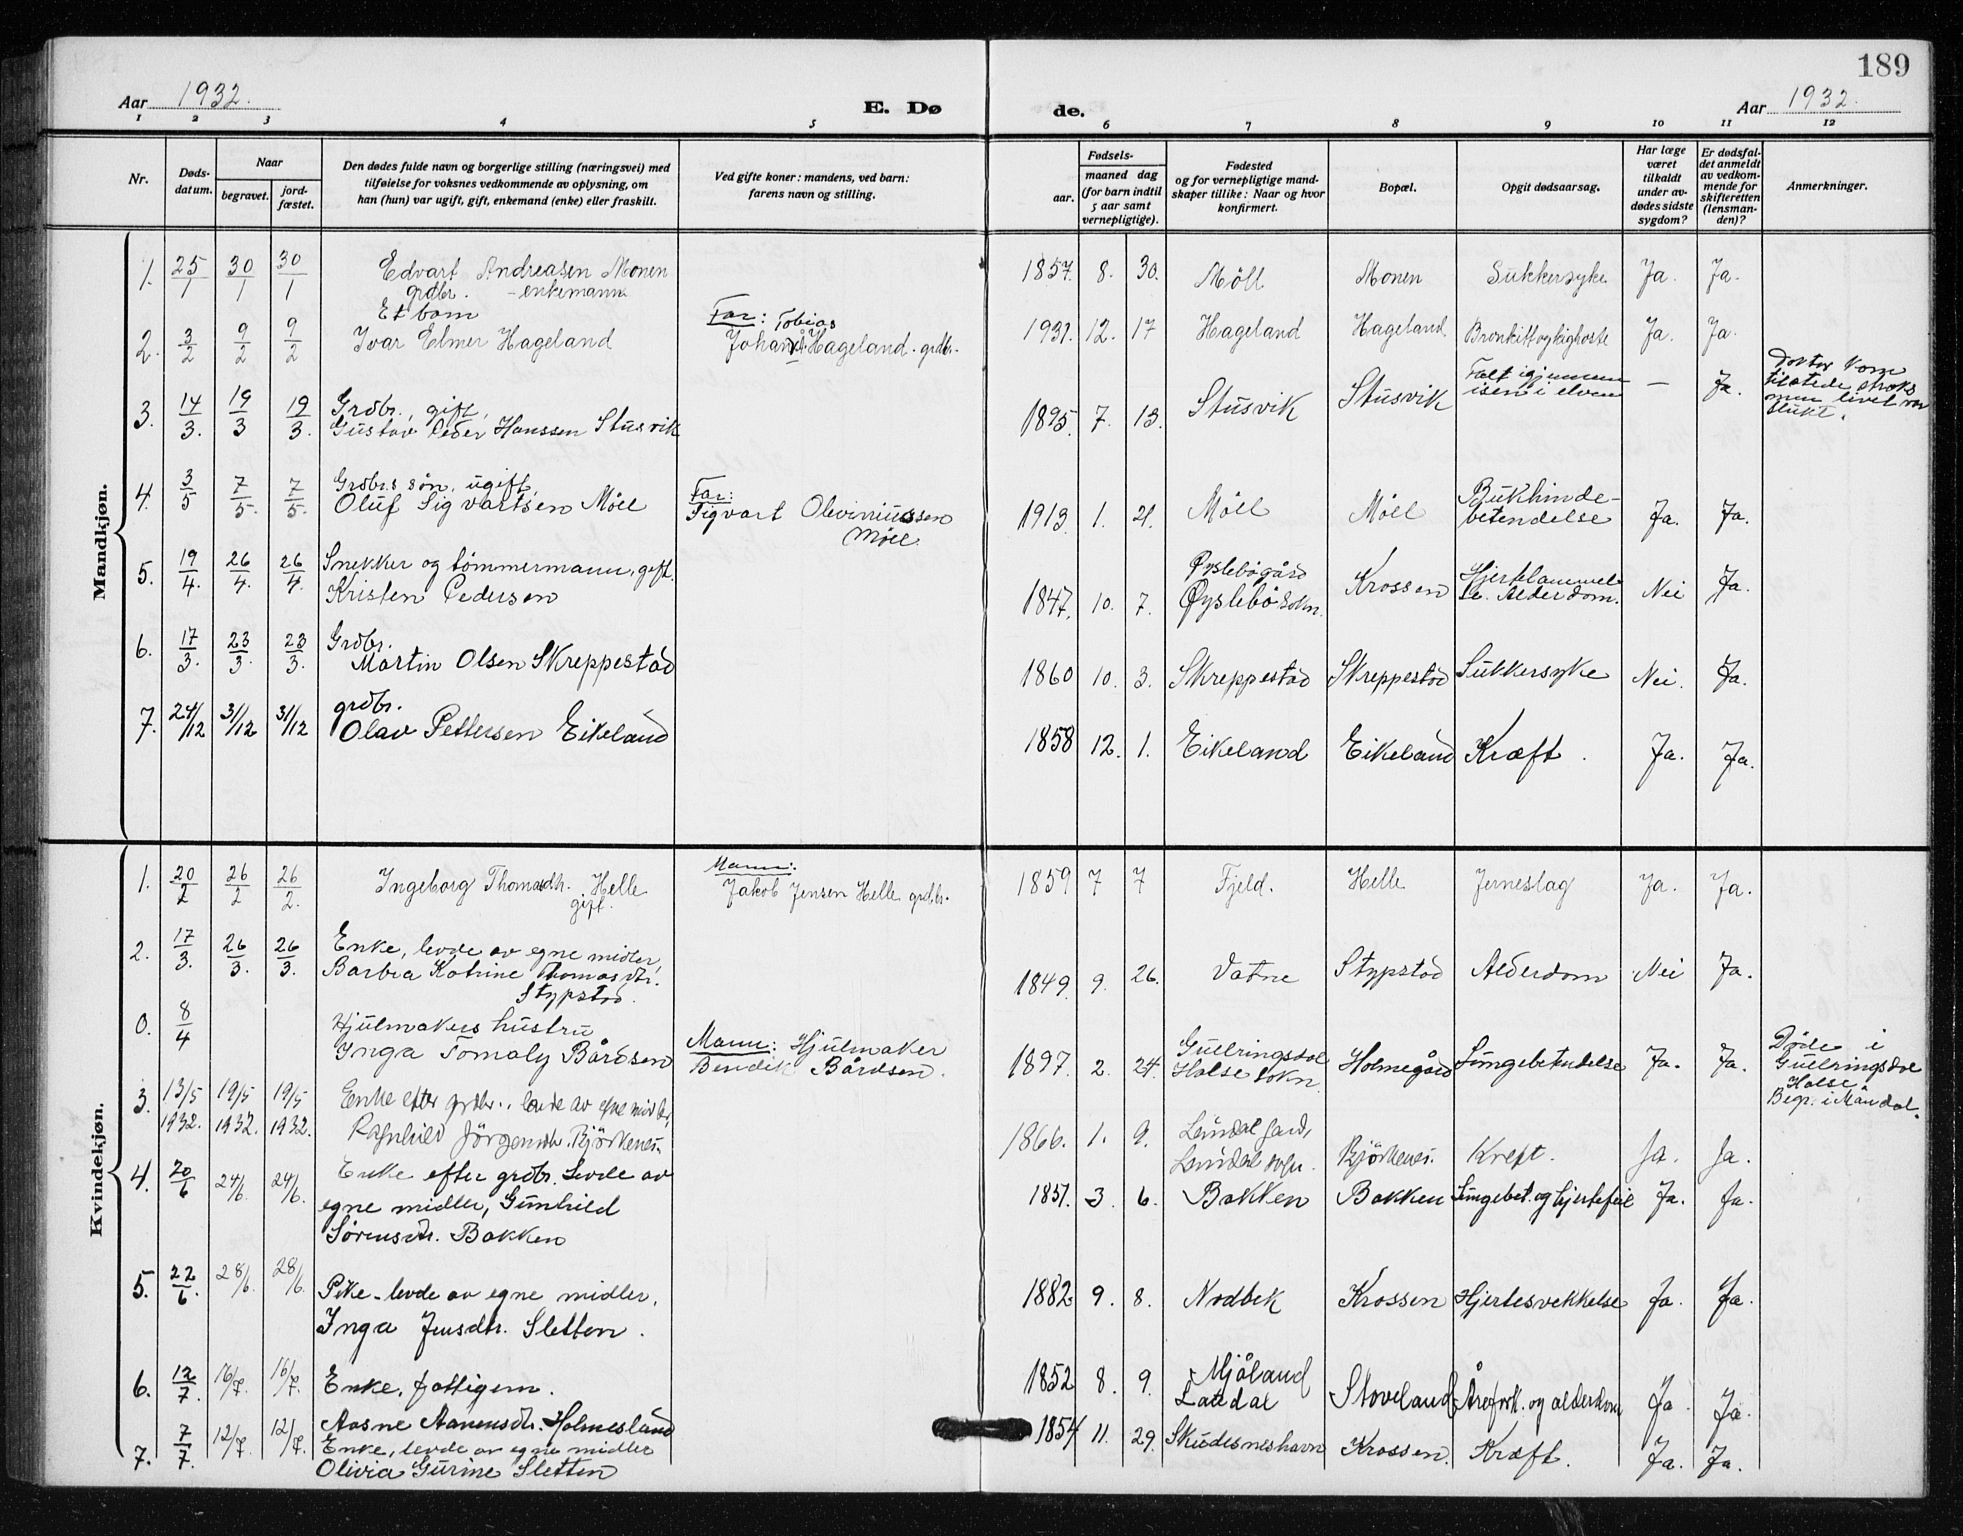 189
Aar 1932.
E. Døde.
Aar 1932.
1 2 3 4 5 6 7 8 9 10 11 12
Nr.
Dødsdatum.
Naar
begravet.
jordfæstet.
Den dødes fulde navn og borgerlige stilling (næringsvei) med
tilføielse for voksnes vedkommende av oplysning, om
han (hun) var ugift, gift, enkemand (enke) eller fraskilt.
Ved gifte koner: mandens, ved barn:
farens navn og stilling.
Fødsels-
aar.
maaned dag
(for barn indtil
5 aar samt
vernepligtige).
Fødested
og for vernepligtige mand-
skaper tillike: Naar og hvor
konfirmert.
Bopæl.
Opgit dødsaarsag.
Har læge
været
tilkaldt
under av-
dødes sidste
sygdom?
Er dødsfal-
det anmeldt
av vedkom-
mende for
skifteretten
(lensman-
den)?
Anmerkninger.
Mandkjøn.
1. 25/1 30/1 30/1 Edvart Andreasen Monen 1857. 8. 30. Möll Monen Sukkersyke Ja. Ja.
grdbr. - enkemann
2. 3/2 9/2 9/2 Et barn
Ivar Elmer Hageland Far: Tobias
Johan Hageland. grdbr. 1931. 12. 17 Hageland Hageland Bronkitt og kighoste Ja. Ja.
3. 14/3. 19/3 19/3. Grdbr., gift,
Gustav Peder Hanssen Stusvik 1895. 7. 13. Stusvik Stusvik Falt igjennem
isen i elven — Ja. Doktor kom
tilstede straks
men livet var
slukt.
4. 3/5 7/5. 7/5. Grdbr.s søn, ugift,
Oluf Sigvartsen Möll Far:
Sigvart Oliviniussen
Möll. 1913. 1. 21. Möll Möll Bukhinde-
betendelse Ja. Ja.
5. 19/4. 26/4. 26/4. Snekker og tömmermann, gift.
Kristen Pedersen 1847. 10. 7. Øyslebögård
Øyslebö sokn. Krossen Hjertelammel-
se. Alderdom. Nei Ja.
6. 17/3. 23/3. 23/3. Grdbr.
Martin Olsen Skreppestad 1860 10. 3. Skreppestad Skreppestad Sukkersyke Nei. Ja.
7. 24/12 31/12 31/12 grdbr.
Olav Pettersen Eikeland 1858 12. 1. Eikeland Eikeland Kræft. Ja. Ja.
Kvindekjøn.
1. 20/2 26/2 26/2. Ingeborg Thomasdtr. Helle
gift. Mann:
Jakob Jensen Helle grdbr. 1859 7 7 Fjeld. Helle Jerneslag Ja. Ja.
2. 17/3. 26/3. 26/3. Enke, levde av egne midler,
Barbra Katrine Thomasdtr.
Stypstad. 1849. 9. 26. Vatne Stypstad Alderdom Nei Ja.
0. 8/4 Hjulmakers hustru
Inga Tomaly Bårdsen Mann: Hjulmaker
Bendik Bårdsen. 1897. 2. 24. Gullringsdal
Halse sokn Holmegård Lungebetendelse Ja. Ja. Døde i
Gullringsdal
Halse.
Begr. i Mandal.
3. 13/5 1932. 19/5 1932. 19/5 1932. Enke efter grdbr., levde av egne midler,
Ragnhild Jörgensdtr. Björkenes. 1866. 1. 9. Laudal gard,
Laudal sogn. Björkenes. Kreft. Ja. Ja.
4. 20/6 24/6. 24/6. Enke efter grdbr. Levde av
egne midler, Gunhild
Sørensdtr. Bakken 1851. 3. 6. Bakken Bakken Lungebet. og hjertefeil Ja. Ja.
5. 22/6. 28/6. 28/6. Pike - levde av egne midler.
Inga Jensdtr. Sletten. 1882 9. 8. Nodbek Krossen Hjertesvekkelse Ja. Ja.
6. 12/7. 16/7. 16/7. Enke, fattigem.
Aasne Aanensdtr. Holmesland 1852 8. 9. Mjåland
Laudal Stoveland Årefork. og alderdom Ja. Ja.
7. 7/7. 12/7. 12/7. Enke, levde av egne midler
Olivia Gurine Sletten 1854 11. 29. Skudesneshavn Krossen. Kræft. Ja. Ja.